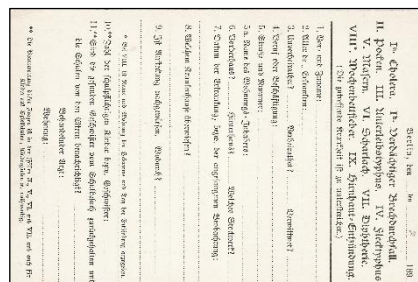 Berlin, den
Ia. Cholera. Ib. Verdächtiger Brechdurchfall.
II. Pocken. III. Unterleibstyphus. IV. Flecktyphus
V. Masern. VI. Scharlach. VII. Diphtherie.
VIII*. Wochenbettfieber. IX. Hirnhaut-Entzündung.
(Die zutreffende Krankheit ist zu unterstreichen.)
1. Vor- und Zuname:
2. Alter des Erkrankten:
3. Unverheirathet? Verheirathet? Verwittwet?
4. Beruf oder Beschäftigung:
5. Straße und Nummer:
5a. Name des Wohnungs-Inhabers:
6. Vorderhaus? Hinterhaus? Welches Stockwerk?
7. Datum der Erkrankung, bezw. der ärztlichen Beobachtung:
8. Welchem Krankenhause überwiesen?
9. Ist Ansteckung nachgewiesen. Woher?
* Bei VIII. ist Name und Wohnung der Hebamme und Tag der Entbindung anzugeben.
10.** Zahl der schulpflichtigen Kinder bezw. Geschwister:
11.** Sind die gesunden Geschwister vom Schulbesuch zurückgehalten und
die Schulen von den Eltern benachrichtigt?
Behandelnder Arzt:
Wohnung: